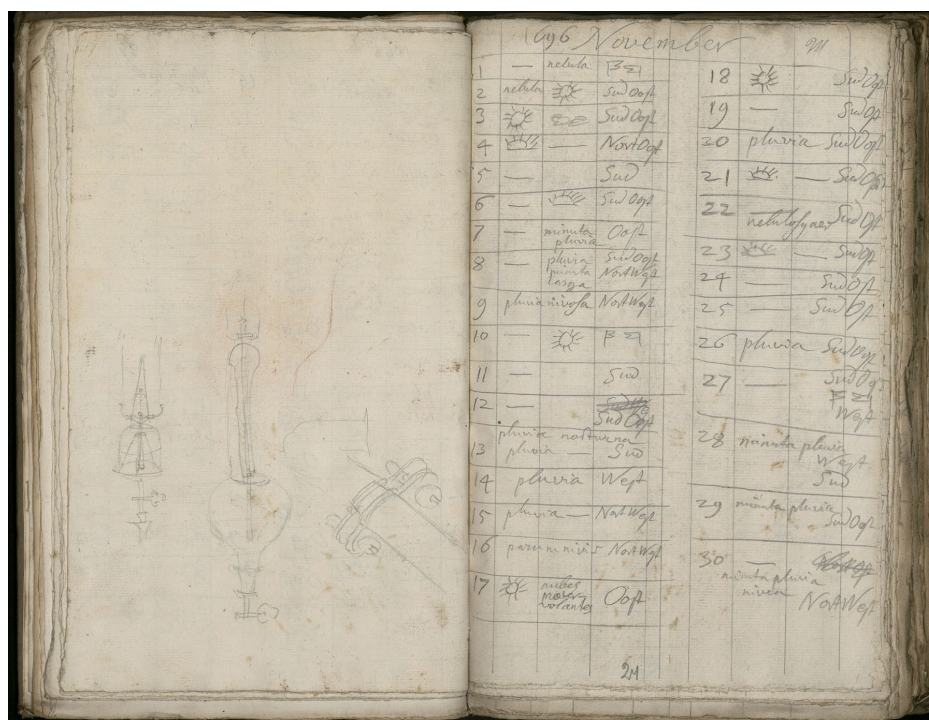 1696 November
1 — nebula
2 nebula Sud Oost
3 Sud Oost
4 — Nort Oost
5 — Sud
6 — Sud Oost
7 — minuta Oost
pluvia
8 — pluvia Sud Oost
minuta Nort West
larga
9 pluvia nivosa Nort West
10 —
11 — Sud
12 —
Sud Oost
pluvia nocturna
13 pluvia — Sud
14 pluvia West
15 pluvia — Nort West
16 parum nivis Nort West
17 nubes Oost
volantes
18 Sud Oost
19 — Sud Ost
20 pluvia Sud Oost
21 — Sud Ost
22 Sud Ost
23 — Sud Ost
24 — Sud Ost
25 — Sud Ost
26 pluvia Sud Oost
27 — Sud Ost
West
28 minuta pluvia
West
Sud
29 minuta pluvia
Sud Oost
30 —
minuta pluvia
nivea Nort West